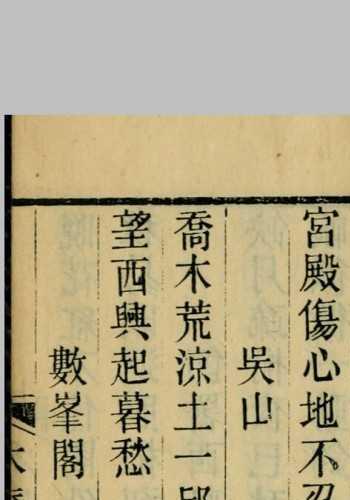 宮殿傷心地不忍
吳山
喬木荒涼土一邱
望西興起暮愁
數峯閣